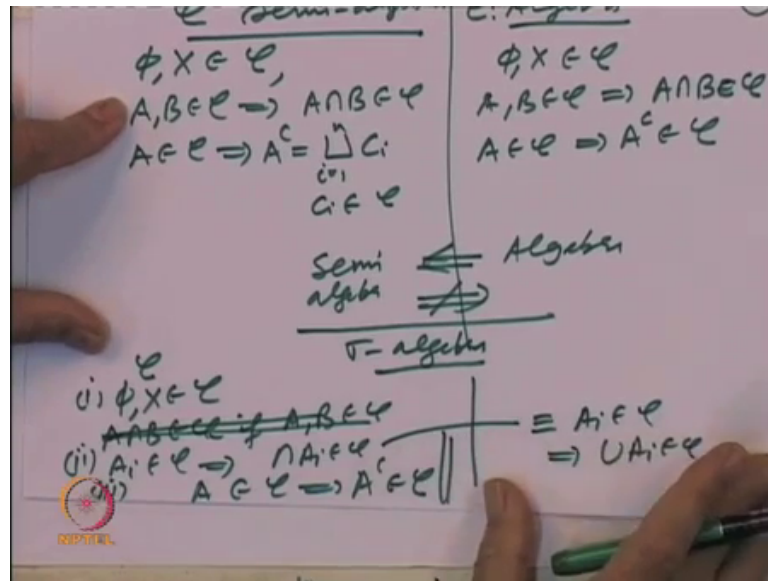 𝒞 Semi-algebra
ϕ, X ∈ 𝒞,
A, B ∈ 𝒞 ⟹ A∩B ∈ 𝒞
A ∈ 𝒞 ⟹ Aᶜ = ⊔ᵢ₌₁ⁿ Cᵢ
Cᵢ ∈ 𝒞
𝒞: Algebra
ϕ, X ∈ 𝒞
A, B ∈ 𝒞 ⟹ A∩B ∈ 𝒞
A ∈ 𝒞 ⟹ Aᶜ ∈ 𝒞
Semi ⟸ Algebra
algebra ⇏
σ-algebra
𝒞
(i) ϕ, X ∈ 𝒞
A∩B ∈ 𝒞 if A, B ∈ 𝒞
(ii) Aᵢ ∈ 𝒞 ⟹ ∩Aᵢ ∈ 𝒞
(iii) A ∈ 𝒞 ⟹ Aᶜ ∈ 𝒞
≡ Aᵢ ∈ 𝒞
⟹ ∪Aᵢ ∈ 𝒞
NPTEL